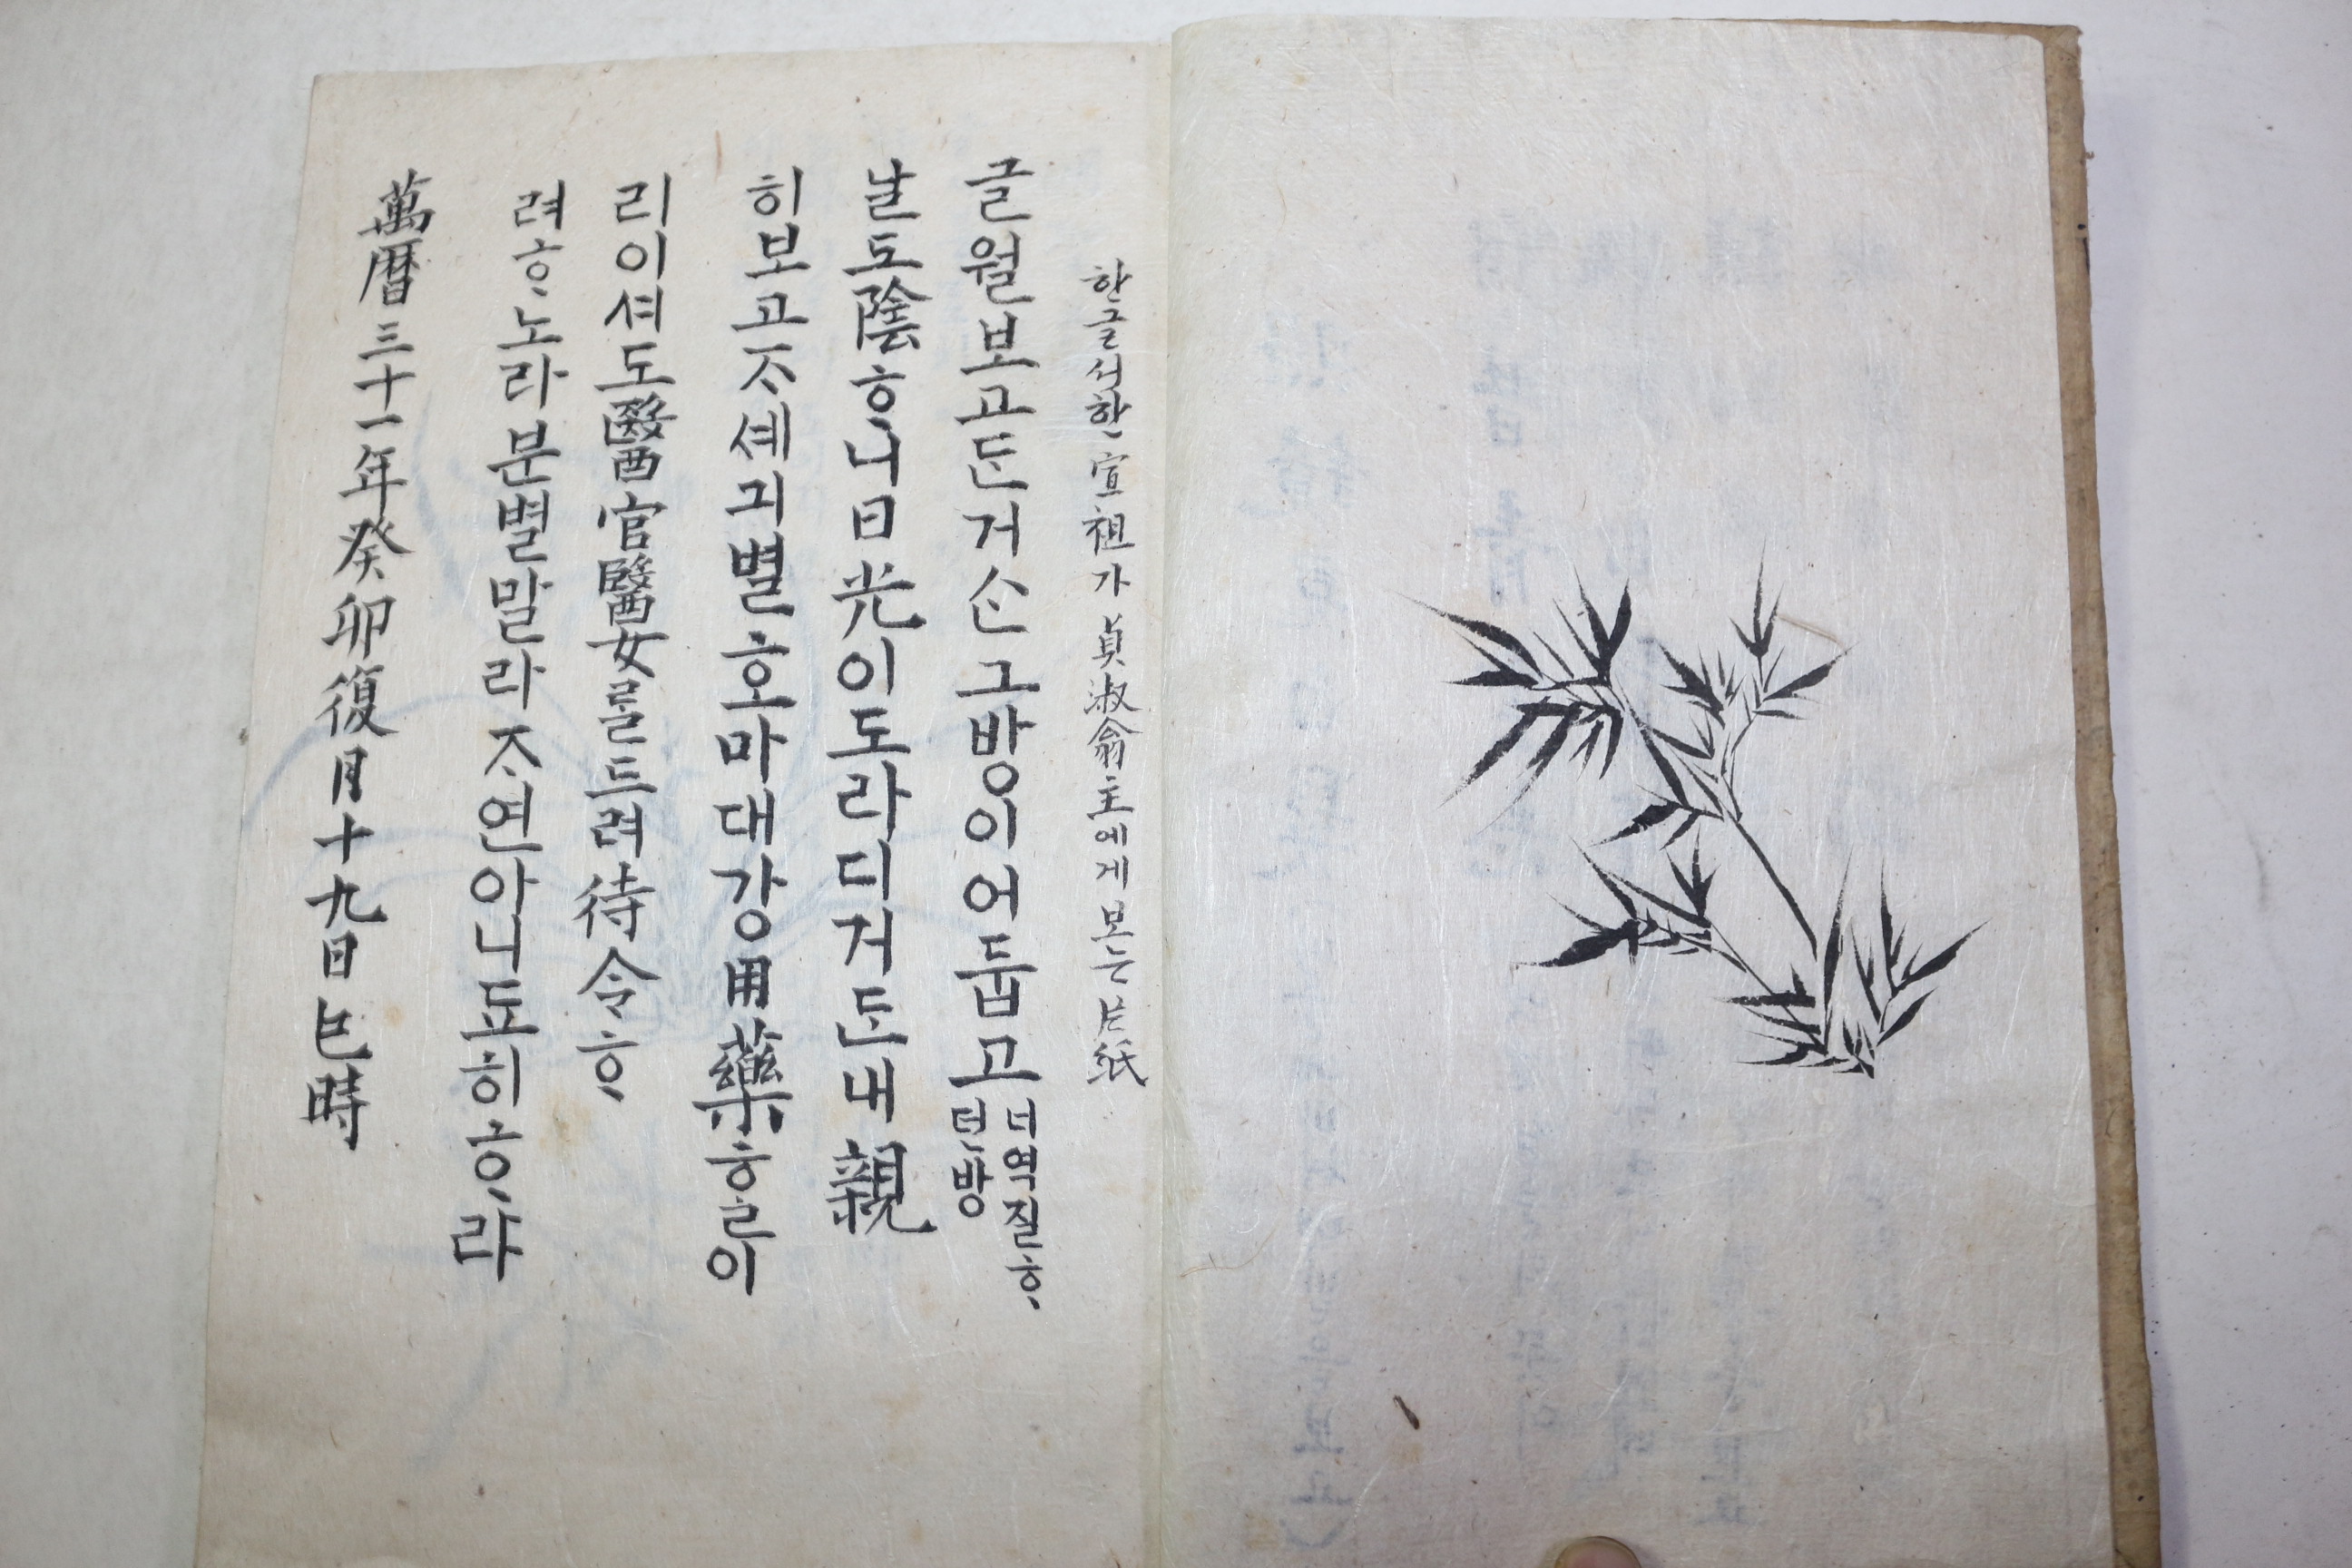 한글서한 宣祖가 貞淑翁主에게 모든 片紙
글월보고ᄃᆞᆫ거ᄉᆞᆫ그방이어둡고 너역질ᄒᆞ
던방
날도陰ᄒᆞ니日光이도라디거ᄃᆞᆫ내親
히보고ᄌᆞ셰긔별호마대강用藥ᄒᆞᆯ이
리이셔도醫官醫女ᄅᆞᆯ드려待令ᄒᆞ
려ᄒᆞ노라분별말라ᄌᆞ연아니됴히ᄒᆞ랴
萬暦三十一年癸卯復月十九日巳時